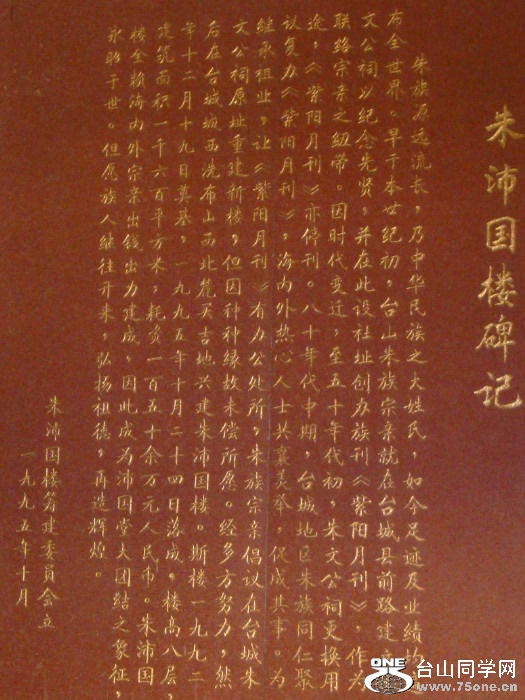 朱沛国楼碑记
朱族源远流长，乃中华民族之大姓氏，如今足迹及业绩均
布全世界。早于本世纪初，台山朱族宗亲就在台城县前路建立朱
文公祠以纪念先贤，并在此设社址创办族刊《紫阳月刊》，作为
联络宗亲之纽带。因时代变迁，至五十年代初，朱文公祠更换用
途；《紫阳月刊》亦停刊。八十年代中期，台城地区朱族同仁聚
议复办《紫阳月刊》，海内外热心人士共襄义举，促成其事。为
继承祖业，让《紫阳月刊》有办公处所，朱族宗亲倡议在台城朱
文公祠原址重建新楼，但因种种缘故未偿所愿。经多方努力，然
后在台城城西洗布山西北麓买吉地兴建朱沛国楼。斯楼一九九二
年十二月十九日奠基，一九九五年十月二十四日落成，楼高八层
建筑面积一千六百平方米，耗资一百五十余万元人民币。朱沛国
楼全赖海内外宗亲出钱出力建成，因此成为沛国堂大团结之象征
永昭于世。但愿族人继往开来，弘扬祖德，再造辉煌。
朱沛国楼筹建委员会立
一九九五年十月
ONE
台山同学网
www.75one.cn